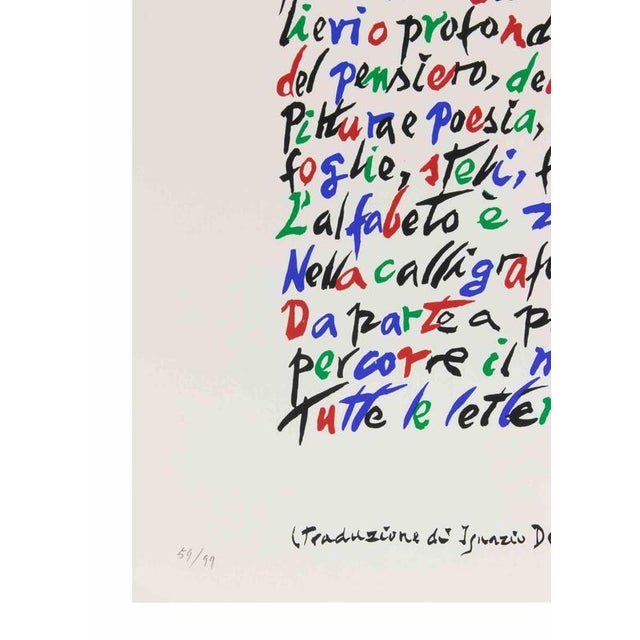 lievi o profond
del pensiero, del
Pittura e poesia,
foglie, steli, f
L'alfabeto è z
Nella calligrafi
Da parte a p
percorre il m
Tutte le letter
(traduzione di Ignazio De
59/99